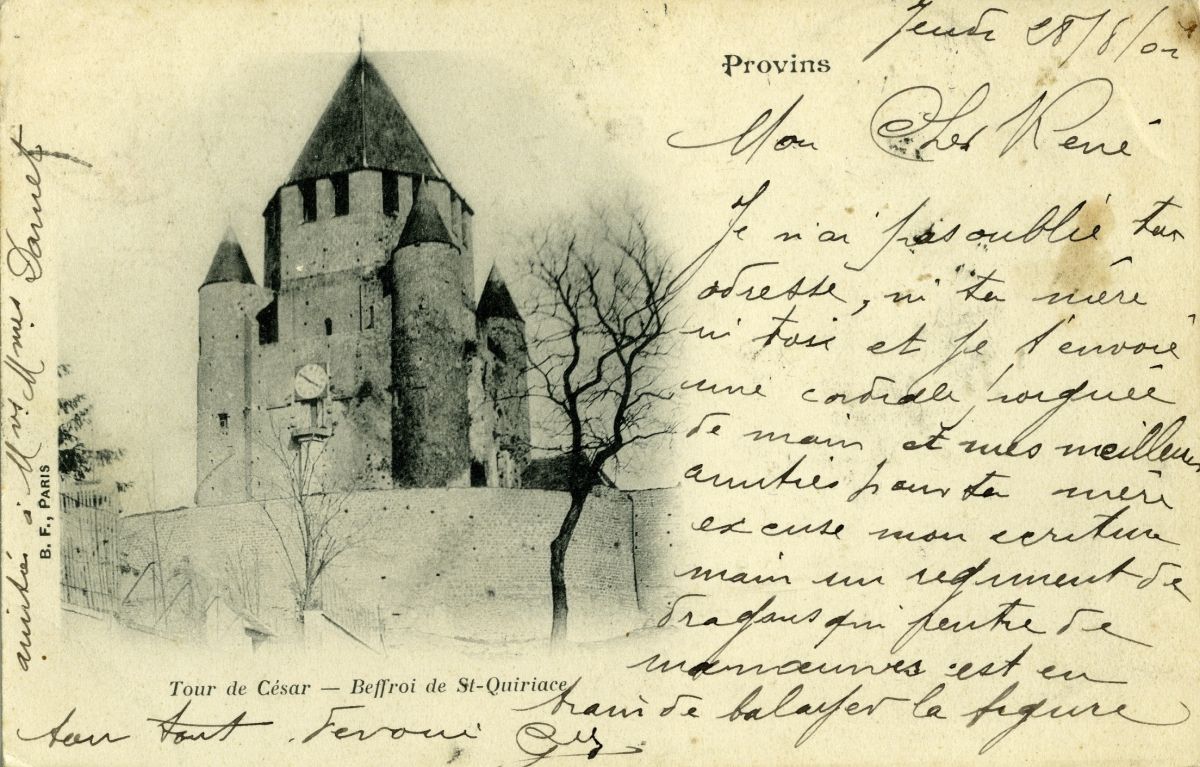 Jeudi 28/8/02
Provins
Mon Cher René
Je n'ai pas oublié ton
adresse, ni ta mère
ni toi et je t'envoie
une cordiale poignée
de main et mes meilleures
amitiés pour ta mère
excuse mon ecriture
main un regiment de
dragons qui rentre de
manœuvres est en
train de balayer la figure
ton tout devoué Guy
amitiés à Mrs Mmes Darnet
B. F., PARIS
Tour de César — Beffroi de St-Quiriace